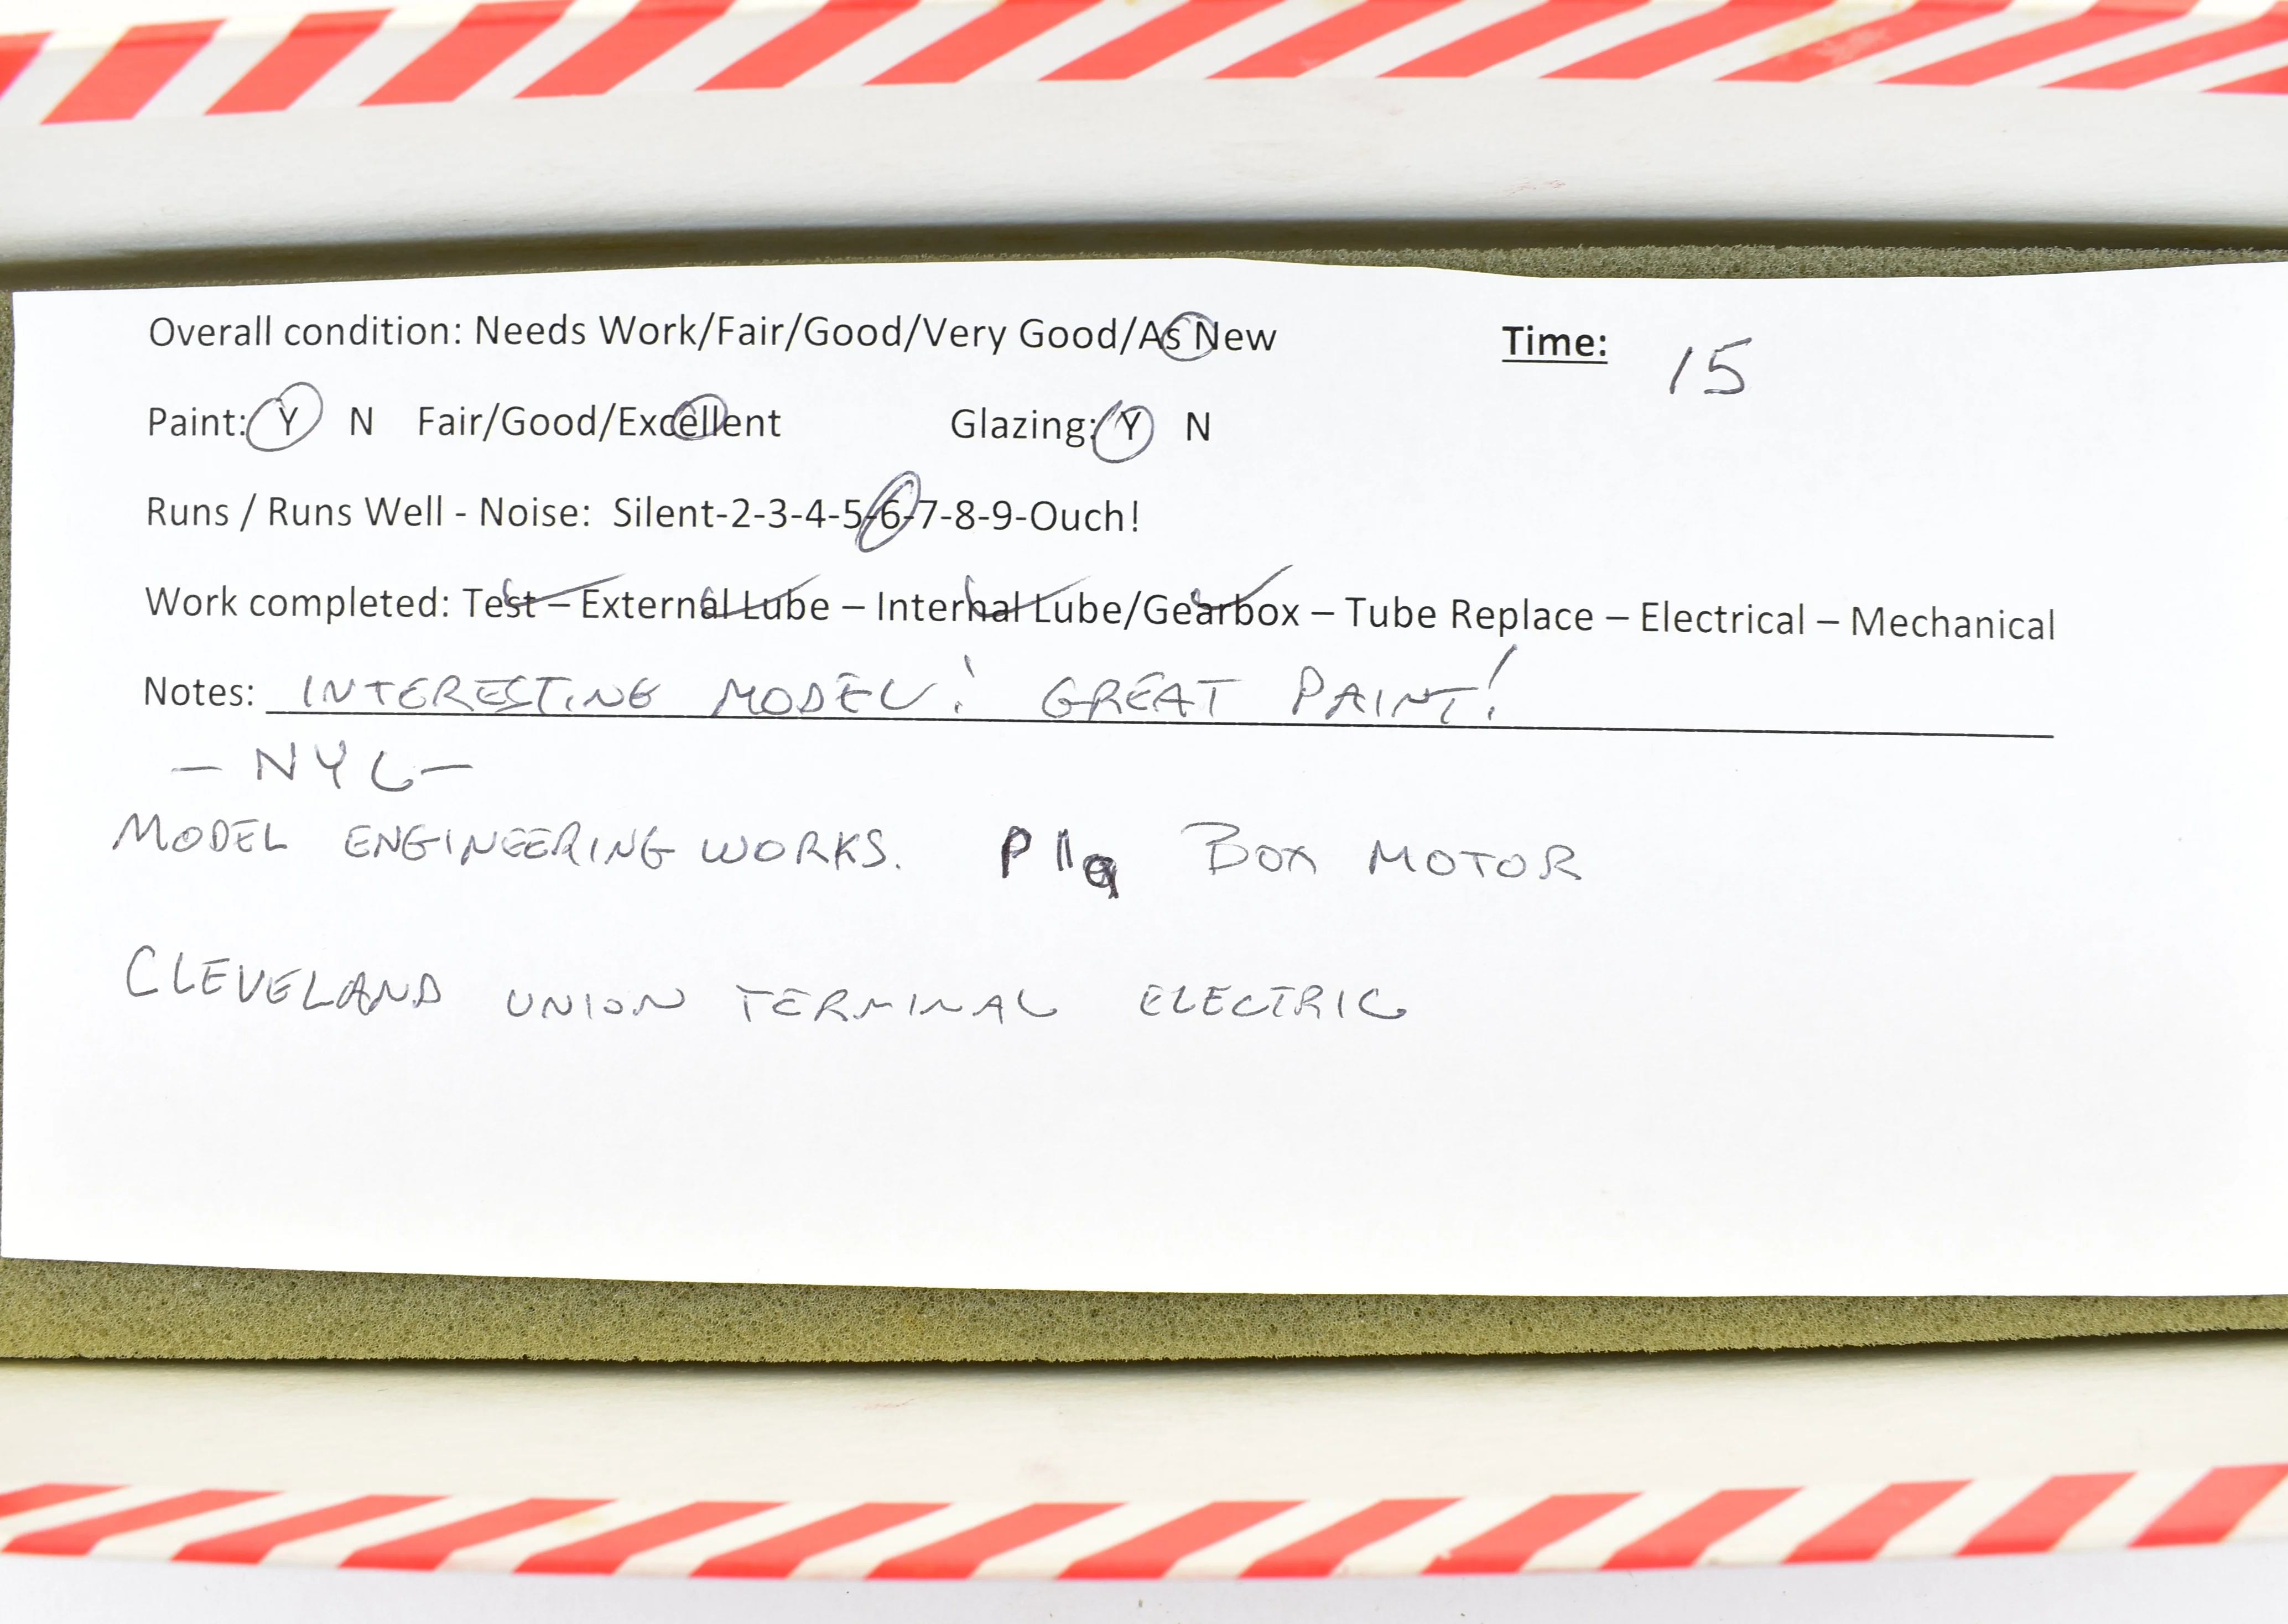 Overall condition: Needs Work/Fair/Good/Very Good/As New Time: 15
Paint: Y N Fair/Good/Excellent Glazing: Y N
Runs / Runs Well - Noise: Silent-2-3-4-5-6-7-8-9-Ouch!
Work completed: Test – External Lube – Internal Lube/Gearbox – Tube Replace – Electrical – Mechanical
Notes: INTERESTING MODEL! GREAT PAINT!
— NYC —
MODEL ENGINEERING WORKS. BOX MOTOR
CLEVELAND UNION TERMINAL ELECTRIC